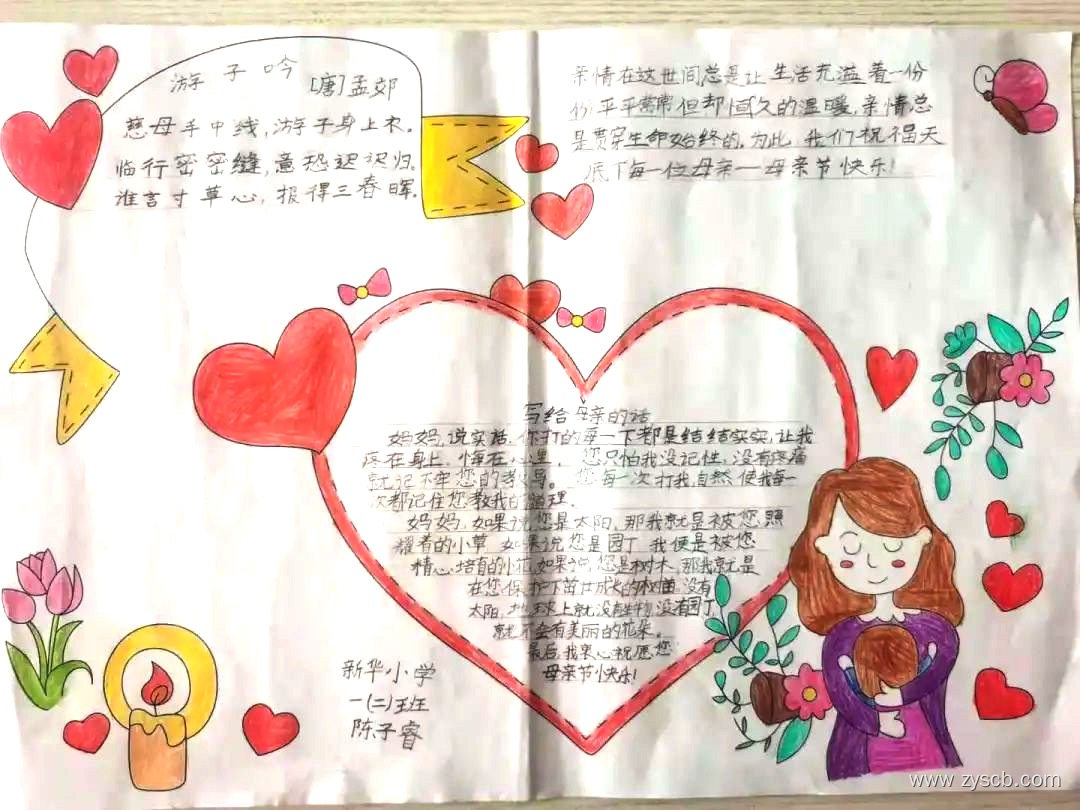 游子吟
[唐]孟郊
慈母手中线,游子身上衣。
临行密密缝,意恐迟迟归。
谁言寸草心,报得三春晖。
亲情在这世间总是让生活充溢着一份
份平平常常但却恒久的温暖,亲情总
是贯穿生命始终的,为此,我们祝福天
底下每一位母亲——母亲节快乐!
写给母亲的话
妈妈,说实话,你打的每一下都是结结实实,让我
疼在身上,悔在心里,您只怕我没记性,没有疼痛
就记不牢您的教导。您每一次打我,自然使我每一
次都记住您教我的道理.
妈妈,如果说您是太阳,那我就是被您照
耀着的小草,如果说您是园丁,我便是被您
精心培育的小花,如果说您是树木,那我就是
在您保护下茁壮成长的树苗。没有
太阳,地球上就没有生物,没有园丁
就不会有美丽的花朵。
最后,我衷心祝愿您
母亲节快乐!
新华小学
一(二)班
陈子睿
www.zyscb.com